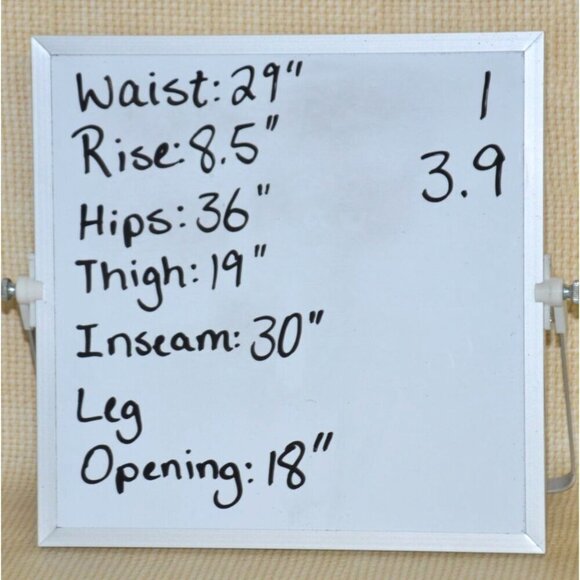 Waist: 29"
1
Rise: 8.5"
3.9
Hips: 36"
Thigh: 19"
Inseam: 30"
Leg
Opening: 18"